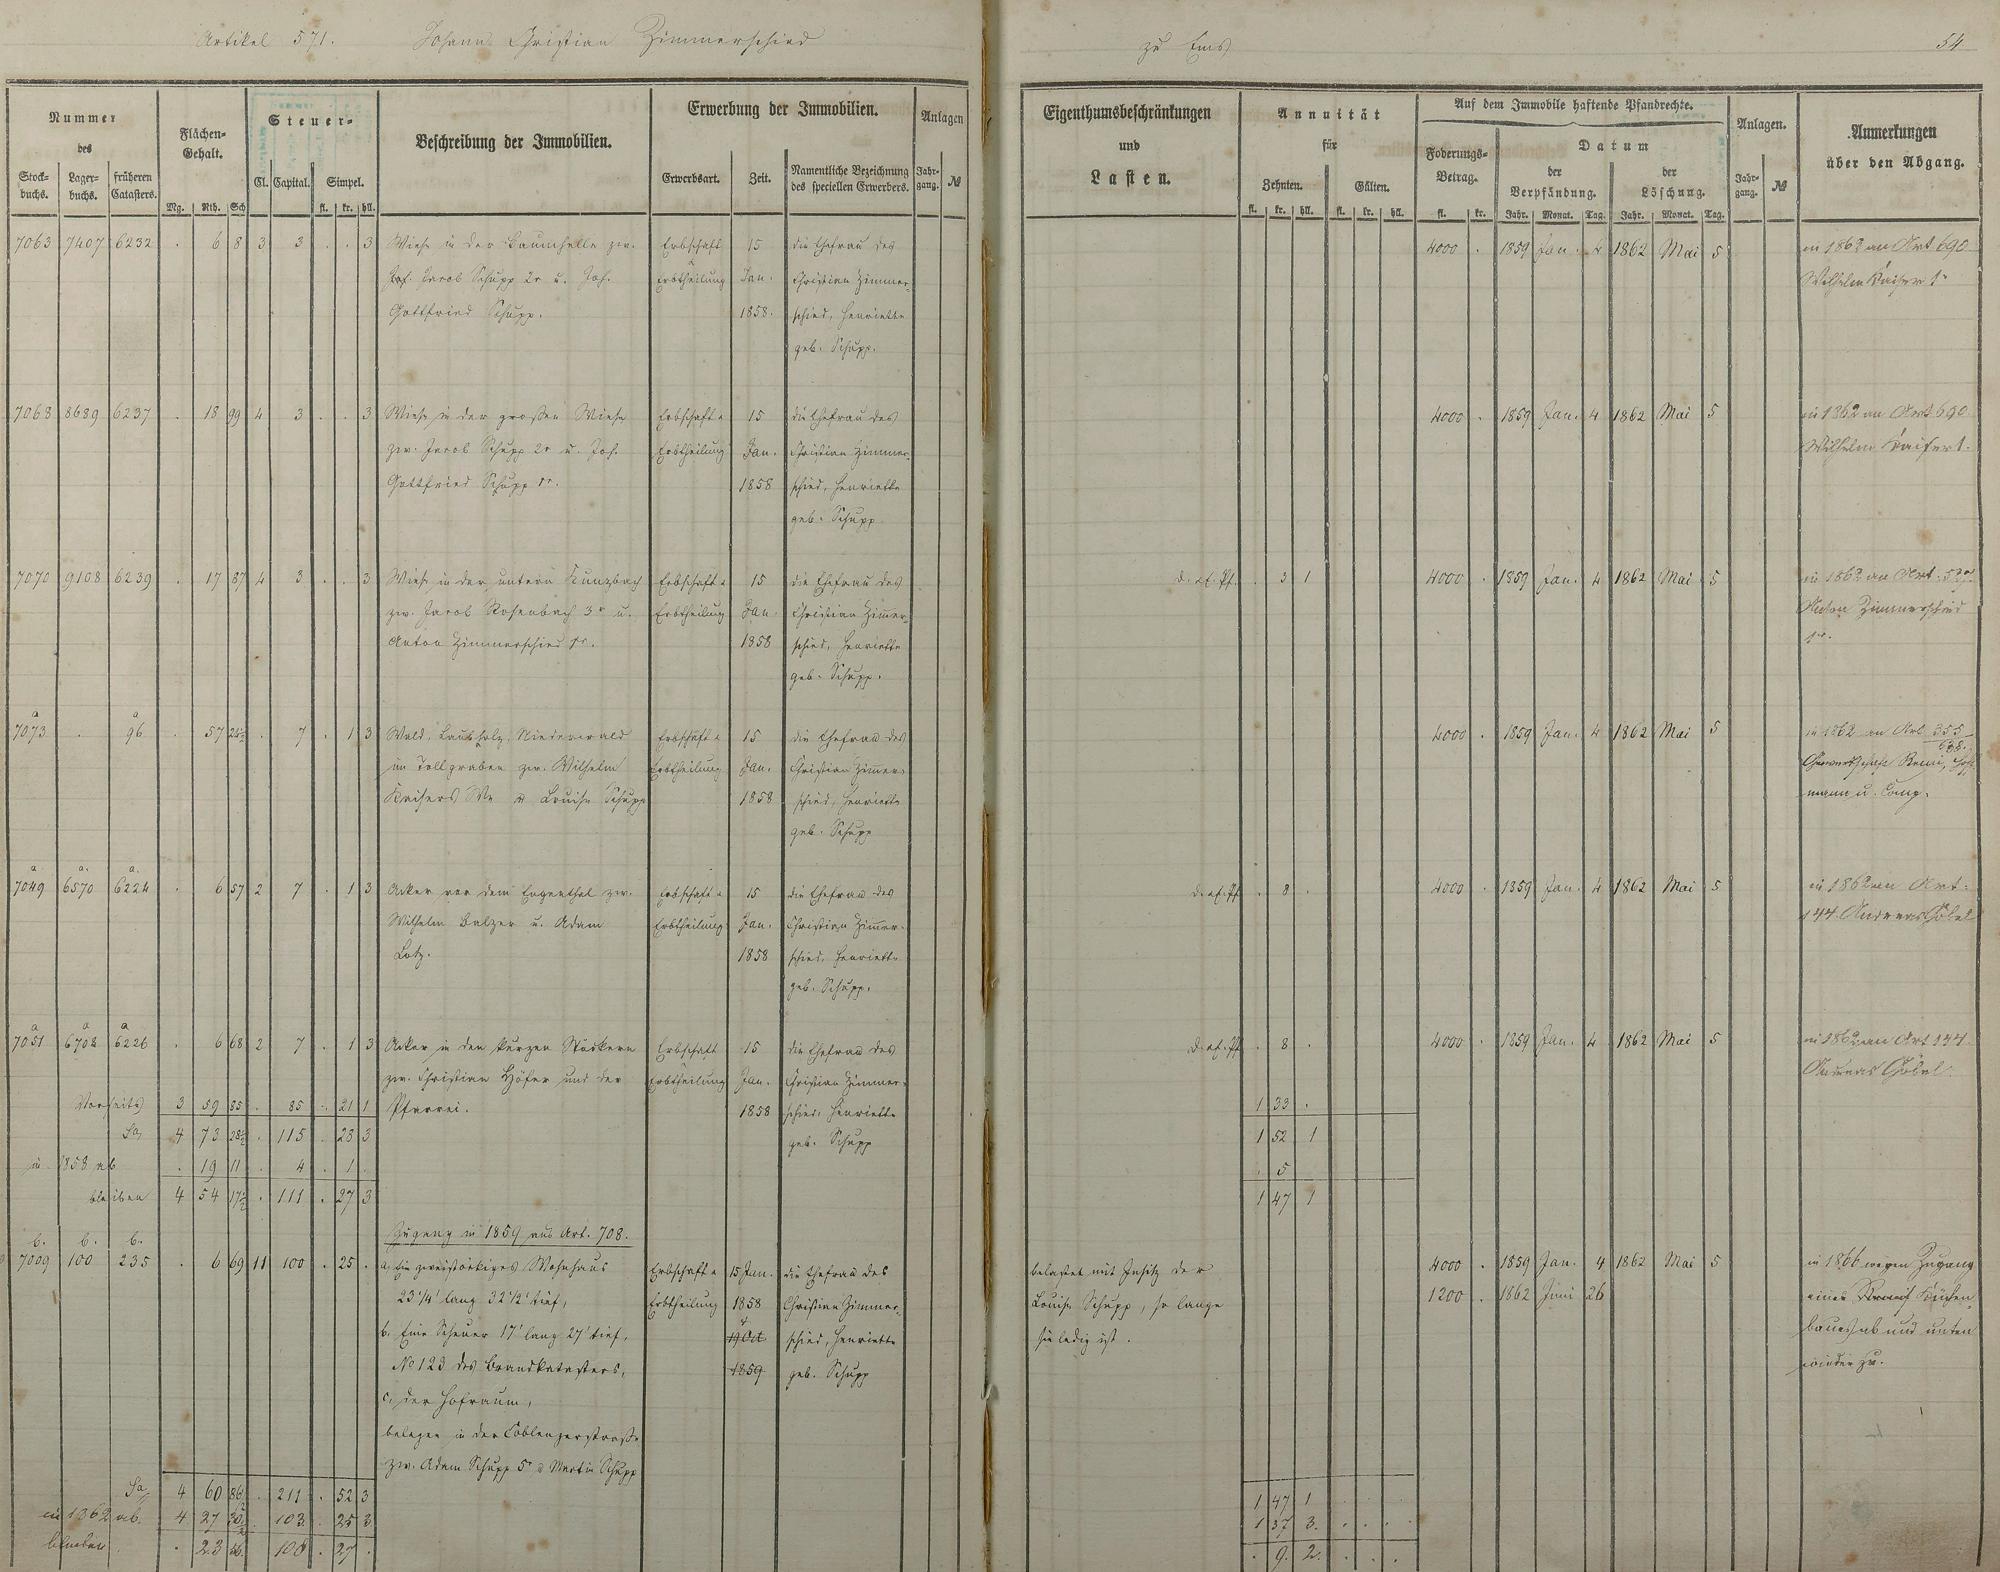 Artikel 571. Johann Christian Zimmerschied zu Ems 54
Nummer des
Stockbuchs. Lagerbuchs. früheren Catasters.
Flächen-Gehalt.
Mg. Rth. Sch
Steuer-
Cl. Capital. Simpel.
fl. kr. hll.
Beschreibung der Immobilien.
Erwerbung der Immobilien.
Erwerbsart. Zeit. Namentliche Bezeichnung des speciellen Erwerbers.
Anlagen
Jahrgang. №
Eigenthumsbeschränkungen und Lasten.
Annuität für
Zehnten. Gülten.
fl. kr. hll. fl. kr. hll.
Auf dem Immobile haftende Pfandrechte.
Foderungs-Betrag. Datum
der Verpfändung. der Löschung.
fl. kr. Jahr. Monat. Tag. Jahr. Monat. Tag.
Anlagen.
Jahrgang. №
Anmerkungen über den Abgang.
7063 7407 6232 . 6 8 3 3 . . 3 Wiese in der Baumhelle zw. Erbschaft 15 die Ehefrau des 4000 . 1859 Jan. 4 1862 Mai 5 in 1862 an Art 690
Joh. Jacob Schupp 2r u. Joh. Erbtheilung Jan. Christian Zimmer- Wilhelm Kaiser 1r
Gottfried Schupp. 1858. schied, Henriette
geb. Schupp.
7068 8689 6237 . 18 99 4 3 . . 3 Wiese in der großen Wiese Erbschaft u 15 die Ehefrau des 4000 . 1859 Jan. 4 1862 Mai 5 in 1862 an Art 690
zw. Jacob Schupp 2r u. Joh. Erbtheilung Jan. Christian Zimmer- Wilhelm Kaiser 1.
Gottfried Schupp 1r. 1858 schied, Henriette
geb. Schupp
7070 9108 6239 . 17 87 4 3 . . 3 Wiese in der untern Kunzbach Erbschaft u 15 die Ehefrau des . 3 1 4000 . 1859 Jan. 4 1862 Mai 5 in 1862 an Art.
zw. Jacob Rosenbach 3r u. Erbtheilung Jan. Christian Zimmer- Anton Zimmerschied
Anton Zimmerschied 1r. 1858 schied, Henriette 1r.
geb. Schupp.
a a
7073 . 96 . 57 . 7 . 1 3 Wald, Laubholz, Niederwald Erbschaft u 15 die Ehefrau des 4000 . 1859 Jan. 4 1862 Mai 5 in 1862 an Art. 355
im Tollgraben zw. Wilhelm Erbtheilung Jan. Christian Zimmer- Gewerkschaft Remi, Hoff
Kaisers We u Louise Schupp 1858 schied, Henriette mann u. Comp.
geb. Schupp
a. a. a.
7049 6570 6224 . 6 57 2 7 . 1 3 Acker vor dem Engenthal zw. Erbschaft u 15 die Ehefrau des . 8 . 4000 . 1859 Jan. 4 1862 Mai 5 in 1862 an Art.
Wilhelm Balzer u. Adam Erbtheilung Jan. Christian Zimmer- 144 Andreas Göbel
Lotz. 1858 schied, Henriette
geb. Schupp.
a a a
7051 6226 . 6 68 2 7 . 1 3 Acker in den kurzen Stückern Erbschaft 15 die Ehefrau des . 8 . 4000 . 1859 Jan. 4 1862 Mai 5 in 1862 an Art 144
zw. Christian Höfer und der Erbtheilung Jan. Christian Zimmer- Andreas Göbel.
Vorseits 3 59 85 . 85 . 21 1 Pfarrei. 1858 schied, Henriette 1 33 .
Sa 4 73 28½ . 115 . 28 3 geb. Schupp 1 52 1
in 1858 ab . 19 11 . 4 . 1 . . 5
bleiben 4 54 17½ . 111 . 27 3 1 47 1
Zugang in 1859 aus Art. 708.
b. b. b.
7009 100 235 . 6 69 11 100 . 25 . a, Ein zweistöckiges Wohnhaus Erbschaft u 15 Jan. die Ehefrau des belastet mit Insitz der 4000 . 1859 Jan. 4 1862 Mai 5 in 1866 wegen Zugang
23¼' lang 32½' tief, Erbtheilung 1858 Christian Zimmer- Louise Schupp, so lange 1200 . 1862 Juni 26 eines Küchen-
b. Eine Scheuer 17' lang 27' tief, 19 Oct schied, Henriette sie ledig ist. baues ab und unten
No 123 des Brandkatasters, 1859 geb. Schupp wieder zu.
c, der Hofraum,
belegen in der Coblenzerstraße
zw. Adam Schupp 5r u Martin Schupp
Sa 4 60 86 . 211 . 52 3 1 47 1
in 1862 ab. 4 27 . 103. 25 3 1 37 3.
bleiben . 23 . 108 . 27 . . 9. 2.